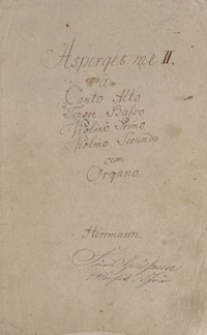 Asperges me II.
a
Canto Alto
Tenore Basso
Violino Primo
Violino Secundo
cum
Organo
Herrmann